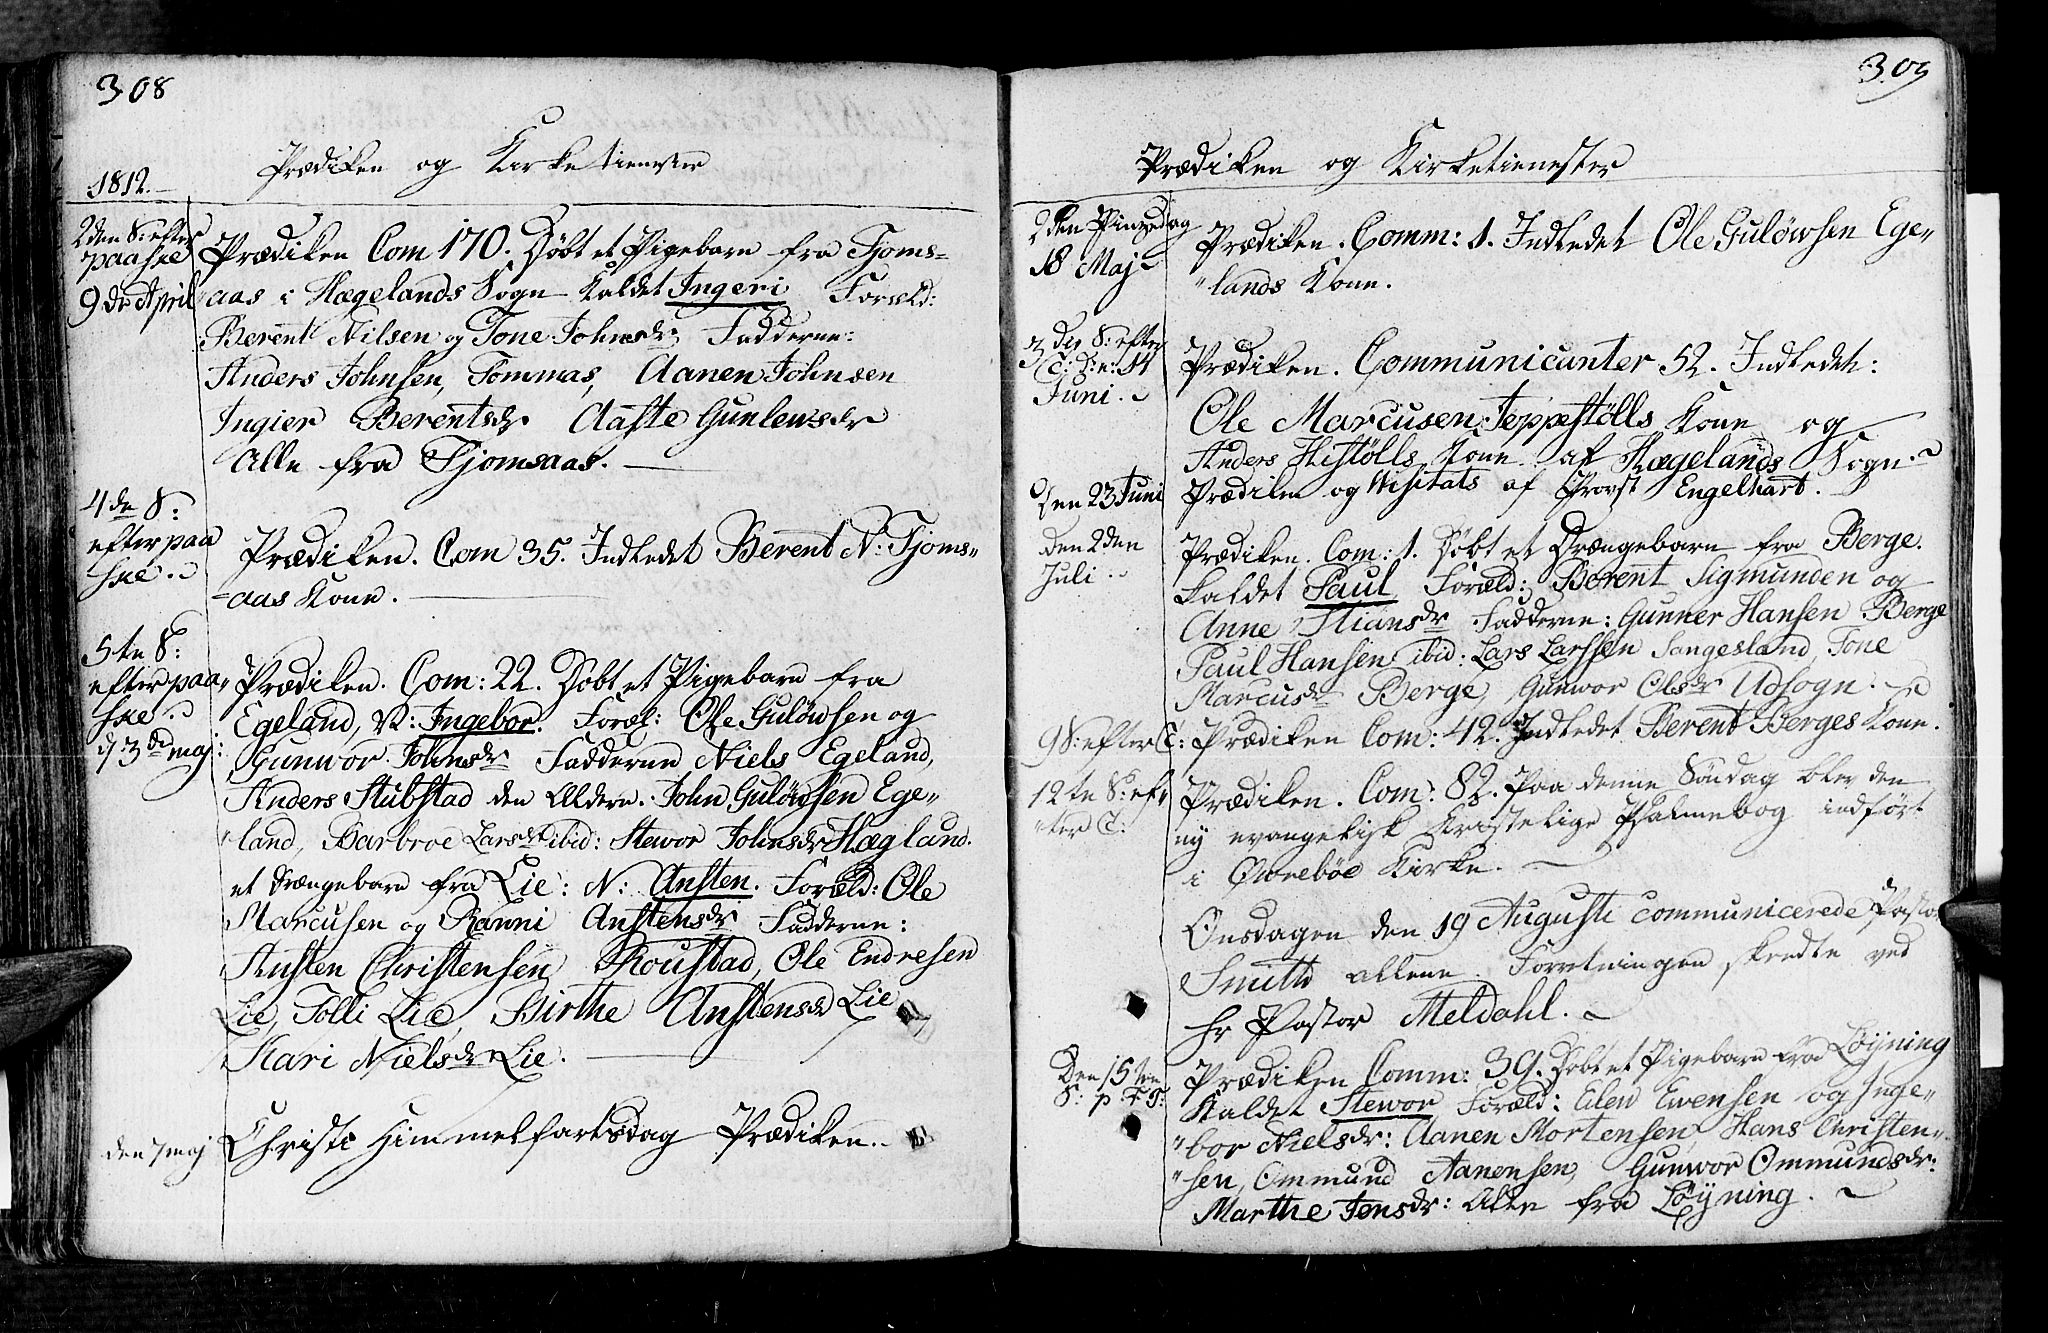 308
Prædiken og Kirketienester
1812.
2den S: efter
paaske
9de April
Prædiken Com 170. Døbt et Pigebarn fra Tjoms=
aas i Hægelands Sogn kaldet Ingeri Foræld:
Berent Nilsen og Tone Johnsdr. Fadderne:
Anders Johnsen, Tommas, Aanen Johnsen
Ingier Berentsdr. Aaste Gunlewsdr
Alle fra Tjomsaas.
4de S:
efter paa
ske.
Prædiken. Com 35. Indledet Berent N: Tjoms=
=aas Kone.
5te S:
efter paa=
ske
d 3de maj:
Prædiken. Com: 22. Døbt et Pigebarn fra
Egeland, N: Ingebor. Foræl: Ole Guløwsen og
Gunwor Johnsdr Fadderne Niels Egeland,
Anders Stubstad den Eldere. John Guløwsen Ege=
land, Barbroe Larsdr ibid: Stewor Johnsdr Hægland.
et Drængebarn fra Lie: N: Ansten. Foræld: Ole
Marcusen og Ranni Anstensdr Fadderne:
Ansten Christensen Roustad, Ole Endresen
Lie, Tolli Lie, Birthe Anstensdr Lie
Kari Nielsdr Lie.
den 7 maj
Christi Himmelfartsdag Prædiken.
309
Prædiken og Kirketienester
2den Pinzedag
18 Maj
Prædiken. Comm: 1. Indledet Ole Guløwsen Ege=
lands Kone.
3die S: efter
T: D: n: 14
Juni.
Prædiken. Communicanter 52. Indledet:
Ole Marcusen Jeppestølls Kone og
Anders Histølls Kone af Hægelands Sogn.
Den 23 Juni
Prædiken og Visitats af Provst Engelhart.
den 2den
Juli.
Prædiken. Com: 1. Døbt et Drængebarn fra Berge.
kaldet Paul Foræld: Berent Sigmunden og
Anne Stiansdr. Fadderne: Gunner Hansen Berge
Paul Hansen ibid: Lars Larssen Sangesland, Tone
Marcusdr Berge, Gunwor Olsdr Udsogn.
9 S: efter T:
Prædiken Com: 42. Indledet Berent Berges Kone.
12te S: ef=
ter T:
Prædiken. Com: 82. Paa denne Søndag blev den
ny evangelisk kristelige Psalmebog indført
i Øvrebøe Kirke.
Onsdagen den 19 Augusti communicerede Pastor
Smitth allene. Forretningen skeedte ved
Hr Pastor Meldahl.
Den 15ten
S: p T:
Prædiken Comm: 39. Døbt et Pigebarn fra Løyning
Kaldet Stewor Foræld: Elew Ewensen og Inge=
bor Nielsdr: Aanen Mortensen, Hans Christen=
sen, Ommund Aanensen, Gunwor Ommundsdr:
Marthe Jensdr: Alle fra Løyning.